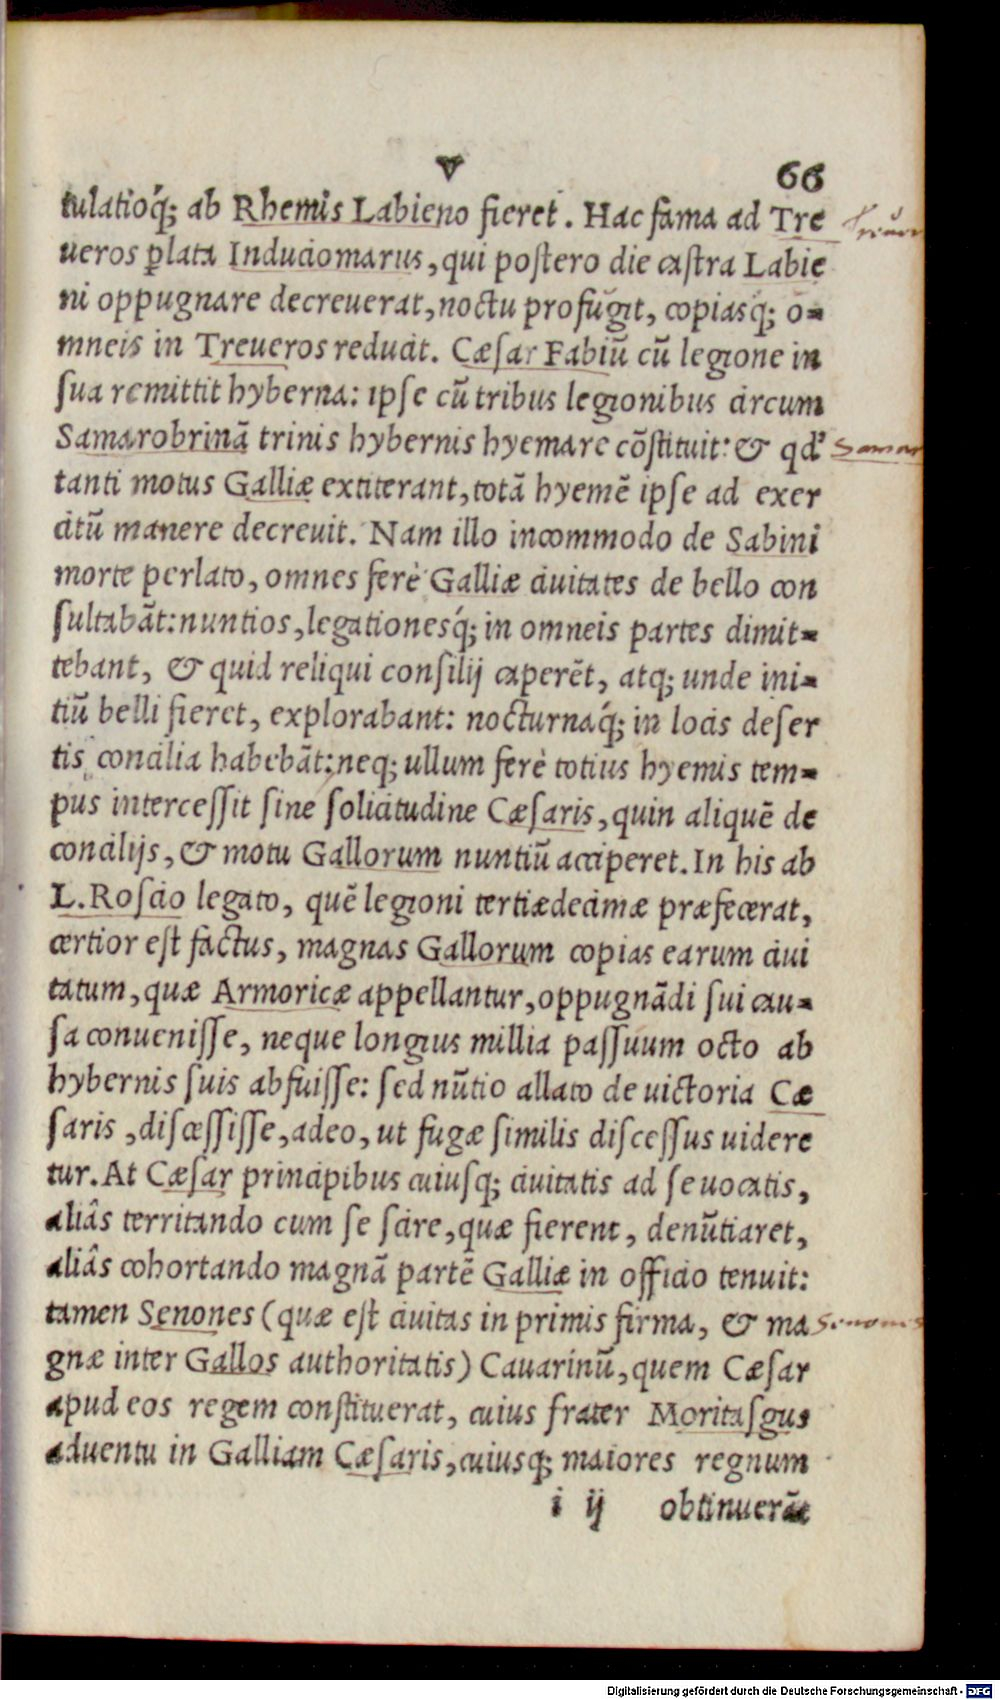 V 66
tulatioq́; ab Rhemis Labieno fieret. Hac fama ad Tre
ueros ꝑlata Induciomarus, qui postero die castra Labie
ni oppugnare decreuerat, noctu profugit, copiasq́; o-
mneis in Treueros reducit. Cæsar Fabiũ cũ legione in
sua remittit hyberna: ipse cũ tribus legionibus circum
Samarobrinã trinis hybernis hyemare cõstituit: & qd'
tanti motus Galliæ extiterant, totã hyemẽ ipse ad exer
citũ manere decreuit. Nam illo incommodo de Sabini
morte perlato, omnes ferè Galliæ ciuitates de bello con
sultabãt: nuntios, legationesq́; in omneis partes dimit-
tebant, & quid reliqui consilij caperẽt, atq; unde ini-
tiũ belli fieret, explorabant: nocturnaq́; in locis deser
tis concilia habebãt: neq; ullum ferè totius hyemis tem-
pus intercessit sine solicitudine Cæsaris, quin aliquẽ de
concilijs, & motu Gallorum nuntiũ acciperet. In his ab
L. Roscio legato, quẽ legioni tertiædecimæ præfecerat,
certior est factus, magnas Gallorum copias earum ciui
tatum, quæ Armoricæ appellantur, oppugnãdi sui cau-
sa conuenisse, neque longius millia passuum octo ab
hybernis suis abfuisse: sed nũtio allato de uictoria Cæ
saris, discessisse, adeo, ut fugæ similis discessus uidere
tur. At Cæsar principibus cuiusq; ciuitatis ad se uocatis,
aliâs territando cum se scire, quæ fierent, denũtiaret,
aliâs cohortando magnã partẽ Galliæ in officio tenuit:
tamen Senones (quæ est ciuitas in primis firma, & ma
gnæ inter Gallos authoritatis) Cauarinũ, quem Cæsar
apud eos regem constituerat, cuius frater Moritasgus
aduentu in Galliam Cæsaris, cuiusq; maiores regnum
i ij obtinuerãt
Senones
Digitalisierung gefördert durch die Deutsche Forschungsgemeinschaft - DFG